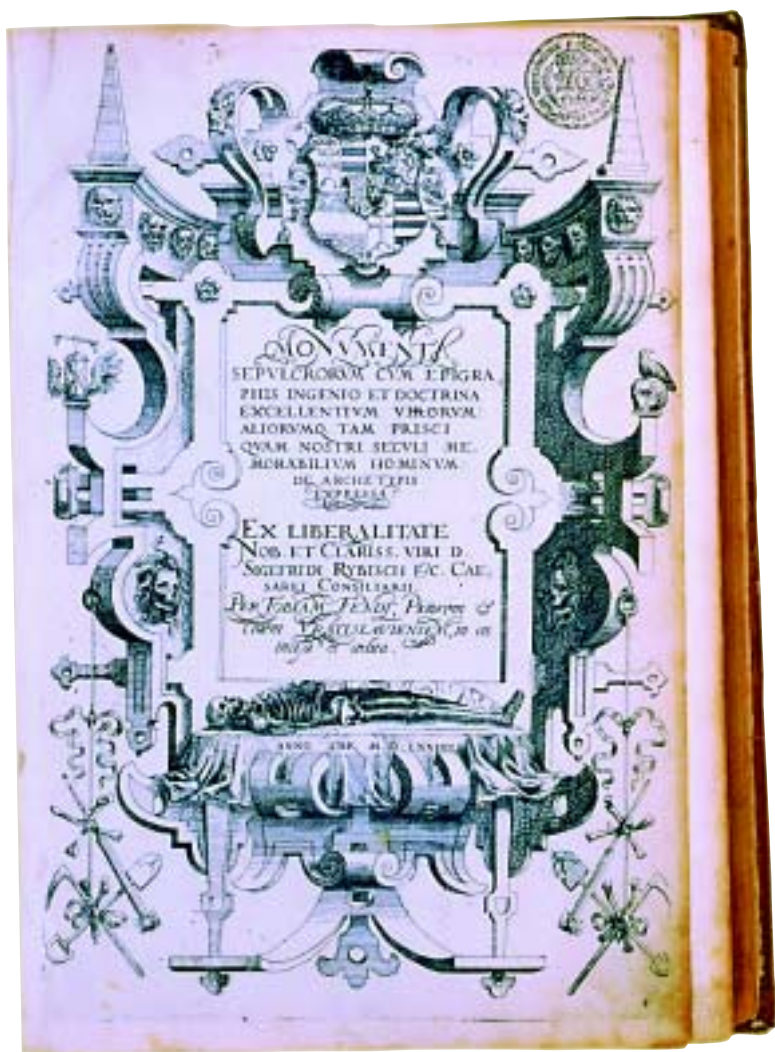 MONVMENTA
SEPVLCRORVM CVM EPIGRA
PHIS INGENIO ET DOCTRINA
EXCELLENTIVM VIRORVM
ALIORVMQ TAM PRISCI
QVAM NOSTRI SECVLI ME.
MORABILIVM HOMINVM.
DE ARCHETYPIS
EXPRESSA
EX LIBERALITATE
NOB. ET CLARISS. VIRI D.
SIGEFRIDI RYBISCH &C. CAE,
SAREI CONSILIARII
PER TOBIAM FENDT, Pictorem &
Civem VRATISLAVIENSEM, in æs
ANNO M D LXXIIII